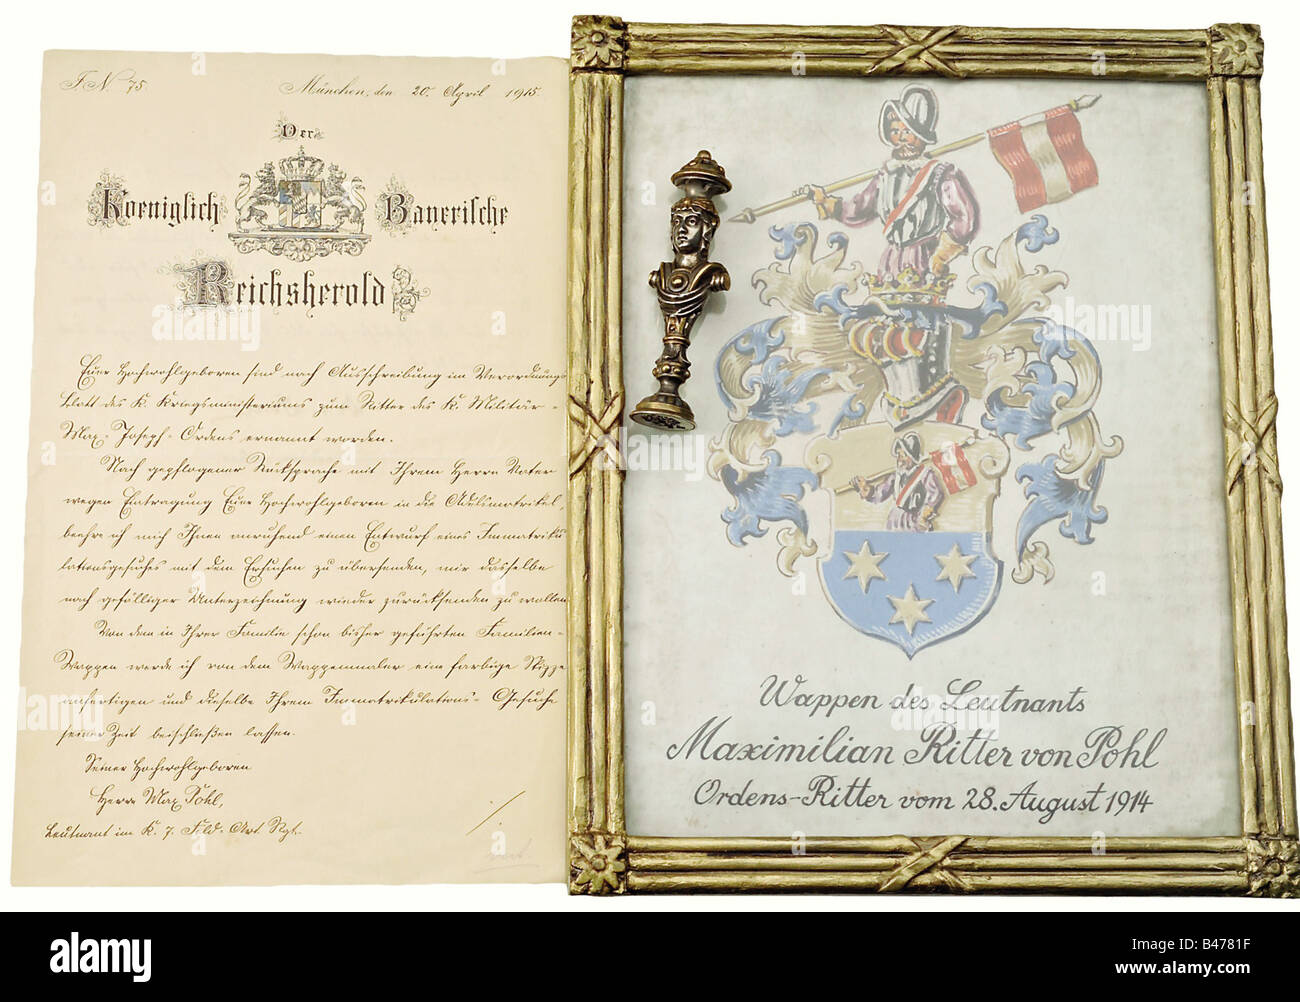 J. N. 75
München, den 20. April 1915.
Der
Koeniglich Bayerische
Reichsherold
Euer Hochwohlgeboren sind nach Ausschreibung im Verordnungs-
blatt des K. Kriegsministeriums zum Ritter des K. Militär-
Max-Joseph-Ordens ernannt worden.
Nach gepflogener Rücksprache mit Ihrem Herrn Vater
wegen Eintragung Euer Hochwohlgeboren in die Adelsmatrikel,
beehre ich mich Ihnen anruhend einen Entwurf eines Immatriku-
lationsgesuches mit dem Ersuchen zu übersenden, mir dasselbe
nach gefälliger Unterzeichnung wieder zurücksenden zu wollen.
Von dem in Ihrer Familie schon bisher geführten Familien-
Wappen werde ich von dem Wappenmaler eine farbige Skizze
anfertigen und dieselbe Ihrem Immatrikulations-Gesuche
seiner Zeit beischließen lassen.
Seiner Hochwohlgeboren
Herrn Max Pohl,
Leutnant im K. 7. Feld. Art. Rgt.
Wappen des Leutnants
Maximilian Ritter von Pohl
Ordens-Ritter vom 28. August 1914
alamy
Image ID: B4781F
www.alamy.com